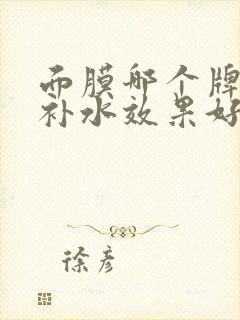 面膜哪个牌
补水效果好
徐彦